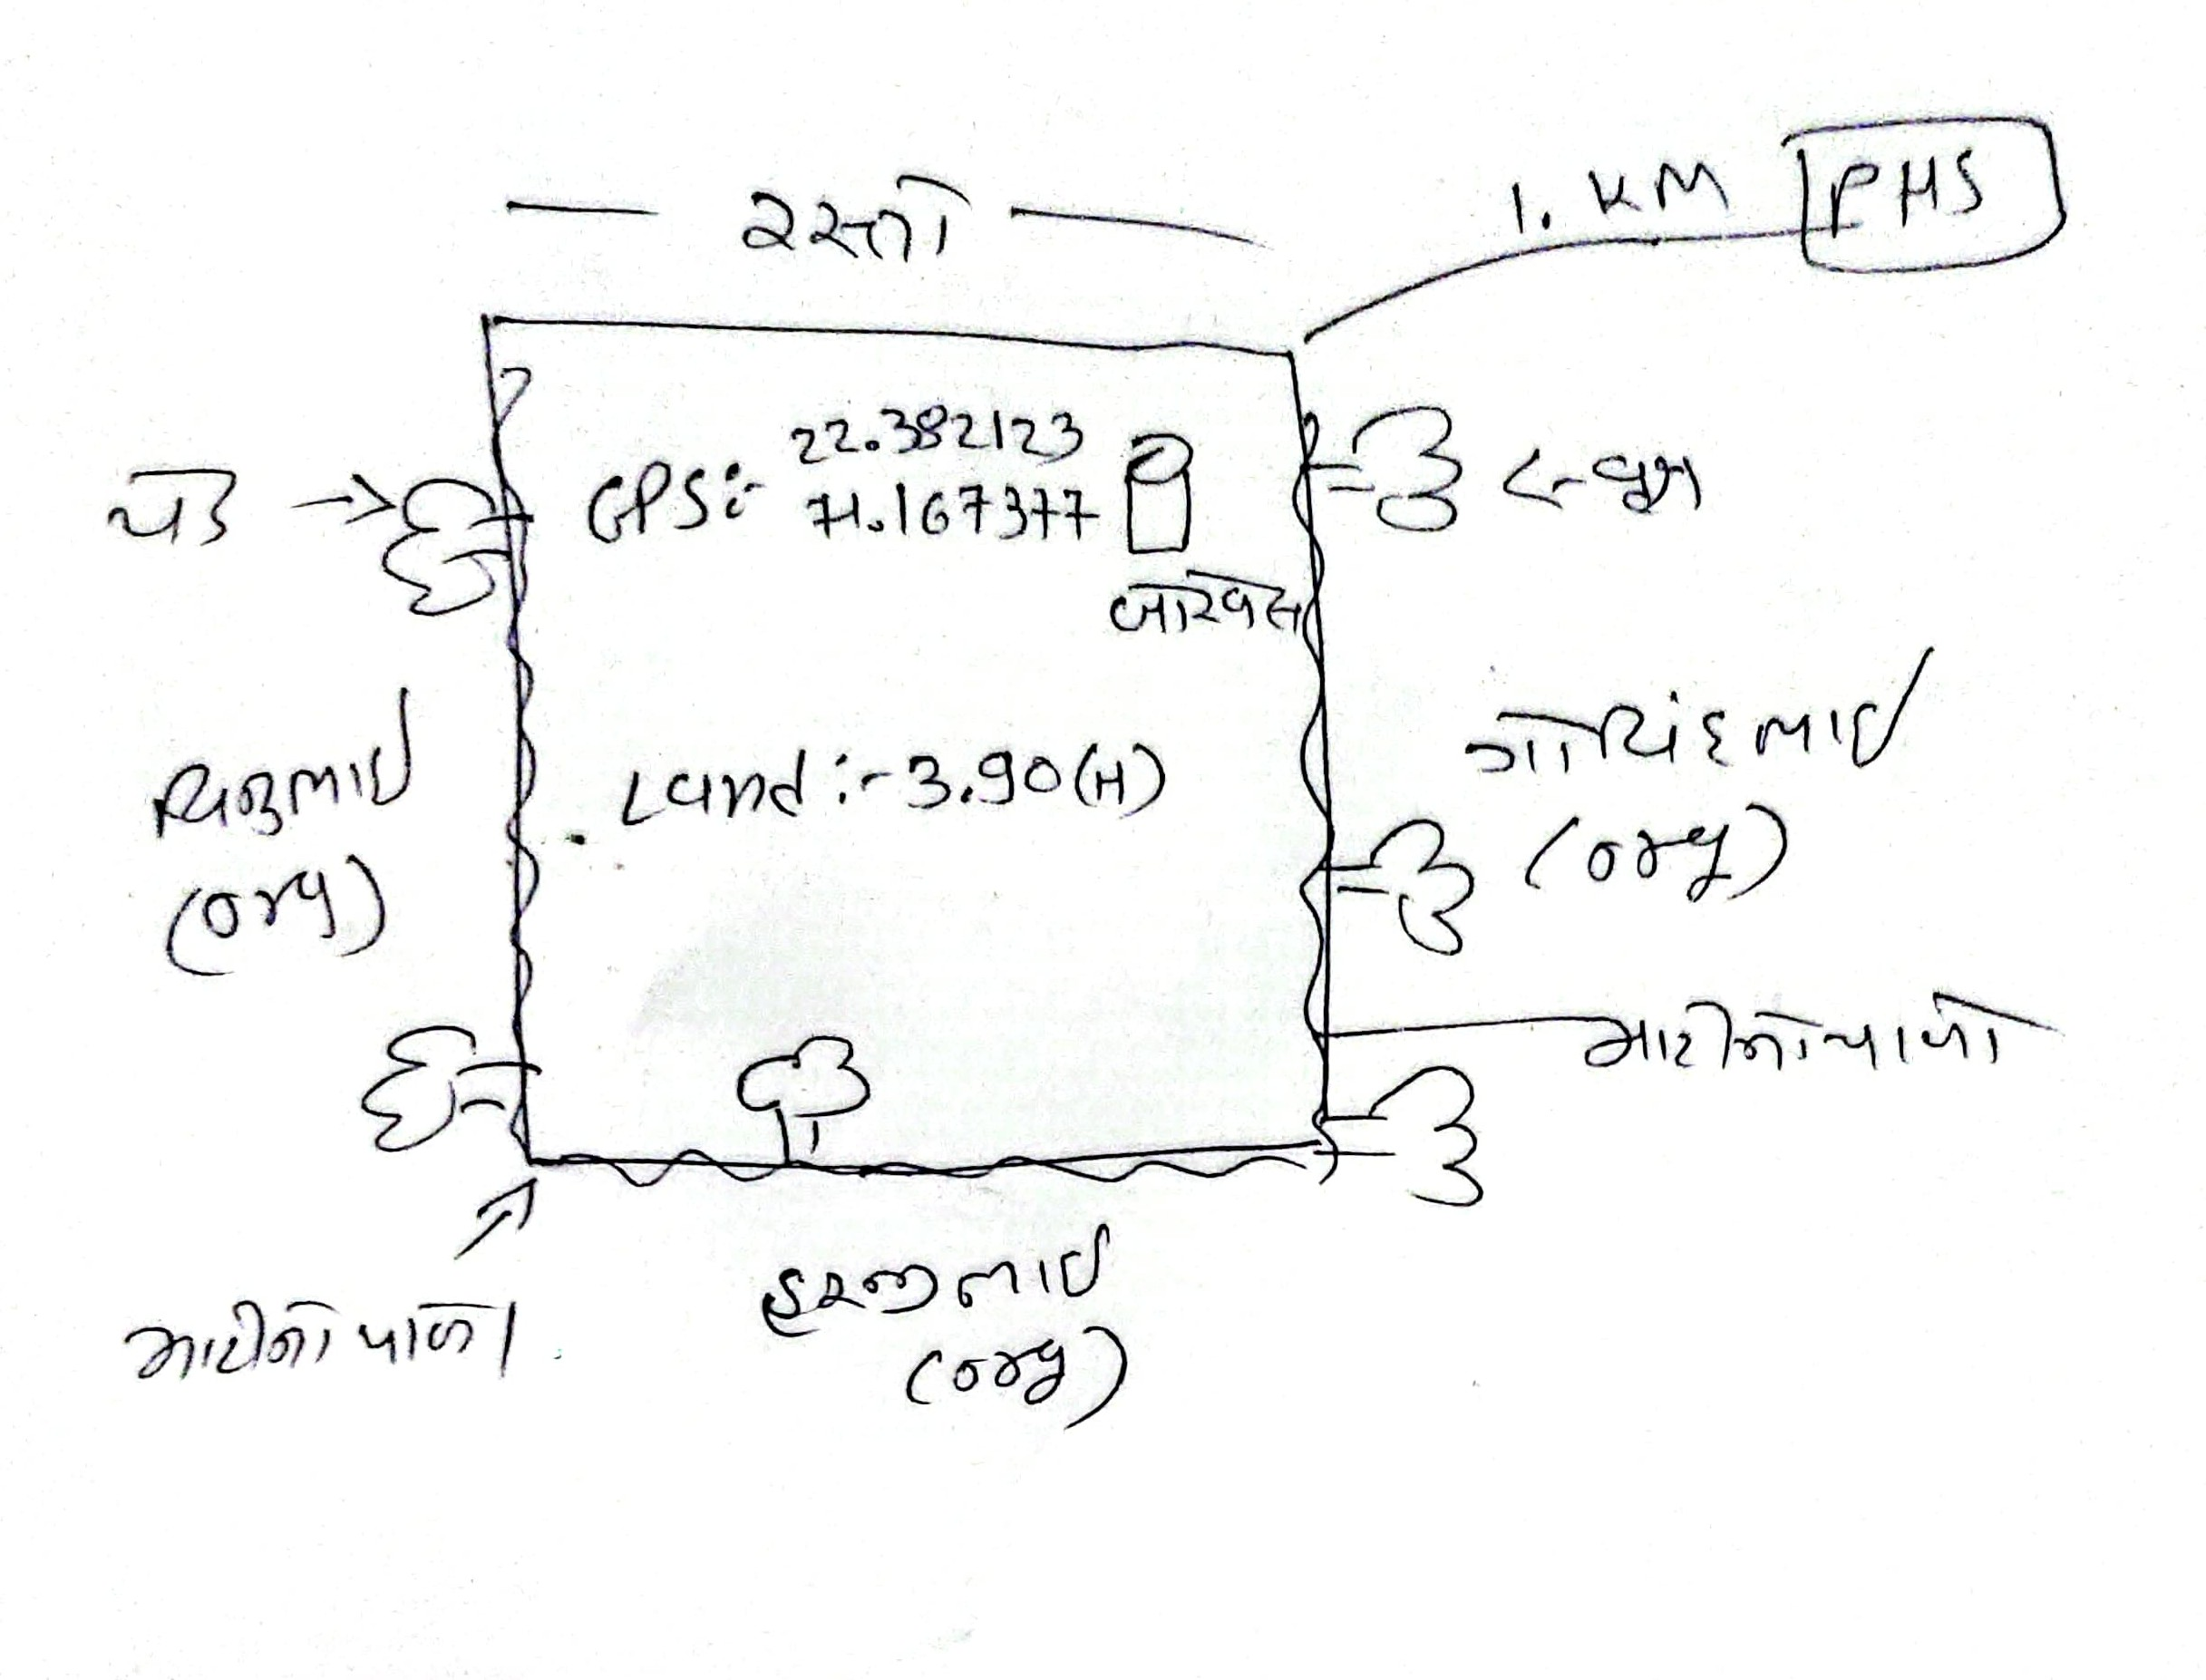 રસ્તો
1. KM PHS
GPS:- 22.382123
71.167377
બોરવેલ
પેડ
વૃક્ષ
Land :- 3.90(H)
ગોવિંદભાઈ
(org)
(org)
માટીનો પાળો
માટીનો પાળો
હરજીભાઈ
(org)